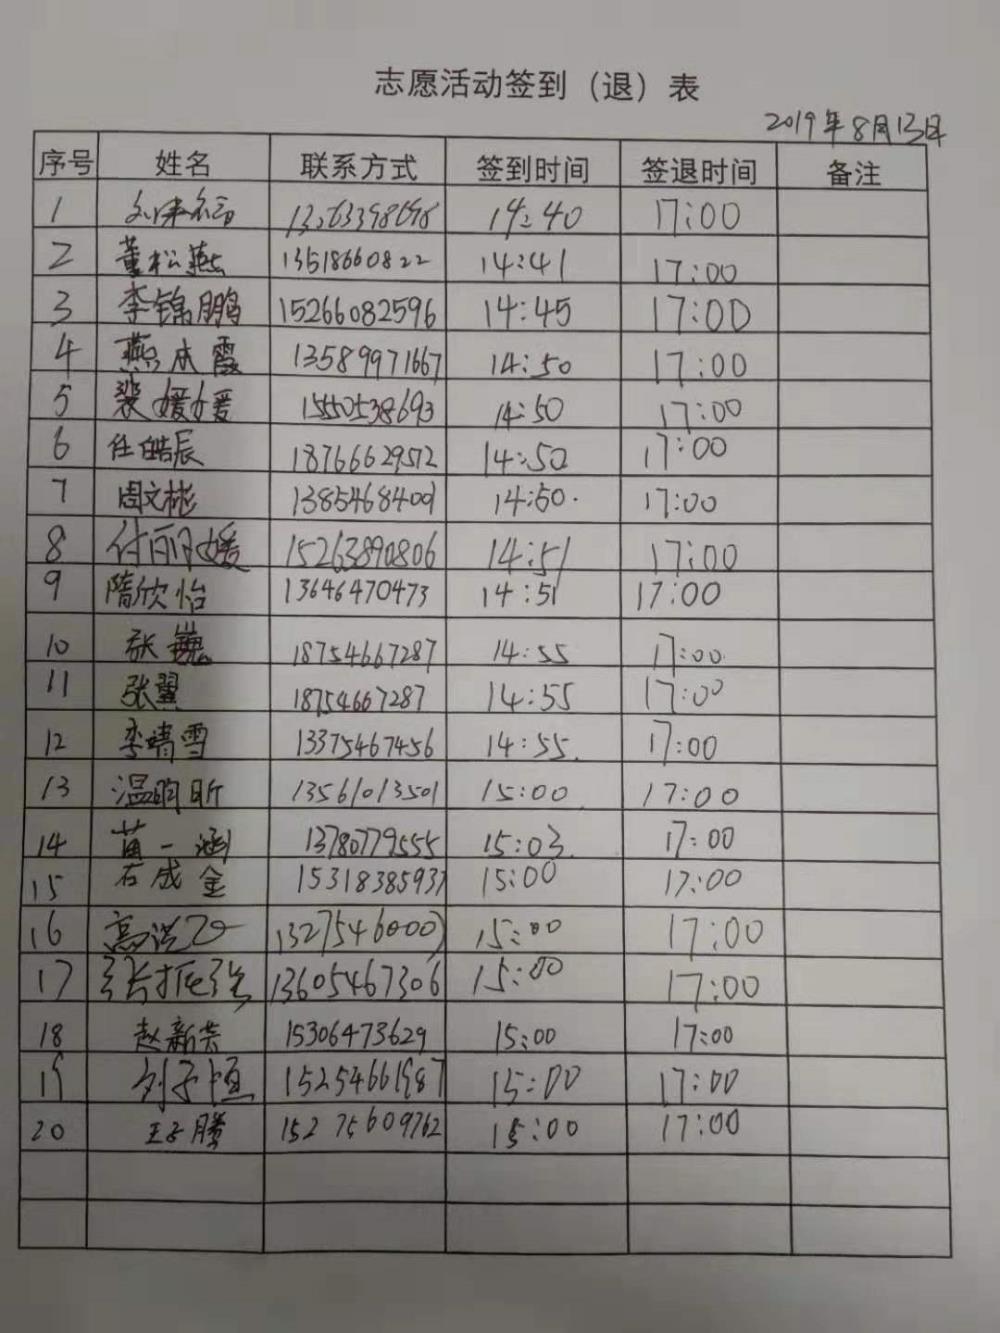 志愿活动签到（退）表
2019年8月13日
序号 姓名 联系方式 签到时间 签退时间 备注
1 14:40 17:00
2 董松燕 13518660822 14:41 17:00
3 李锦鹏 15266082596 14:45 17:00
4 燕成霞 13589971667 14:50 17:00
5 裴媛媛 15505138693 14:50 17:00
6 任皓辰 18766629572 14:50 17:00
7 周文彬 13854684009 14:50 17:00
8 付丽媛 15263890806 14:51 17:00
9 隋欣怡 13646470473 14:51 17:00
10 张巍 18754667287 14:55 17:00
11 张翼 18754667287 14:55 17:00
12 李靖雪 13375467456 14:55 17:00
13 温昀昕 13561013501 15:00 17:00
14 苗一涵 13780779555 15:03 17:00
15 石成金 15318385937 15:00 17:00
16 15:00 17:00
17 13605467306 15:00 17:00
18 赵新芸 15306473629 15:00 17:00
19 刘子恒 15254661987 15:00 17:00
20 王子腾 15275609762 15:00 17:00